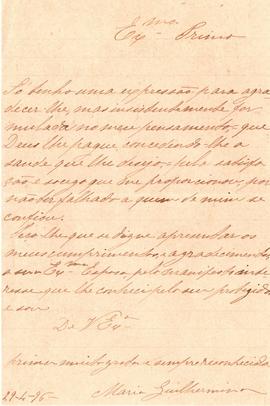 Exma Primo
Só tenho uma expressão para agra
decer-lhe, mas insistentemente for
mulada no meu pensamento - que
Deus lhe pague concedendo-lhe a
saude que lhe desejo - pela satisfa
ção e socego que me proporcionou por
não ter falhado a quem de mim se
confiou.
Peço-lhe que se digne apresentar os
meus cumprimentos e agradecimentos
a sua Exma Esposa pelo inte
resse que lhe conheci pelo seu protegido
e sou
De V Exa
prima muito grata e sempre reconhecida
29-4-96- Maria Guilhermina